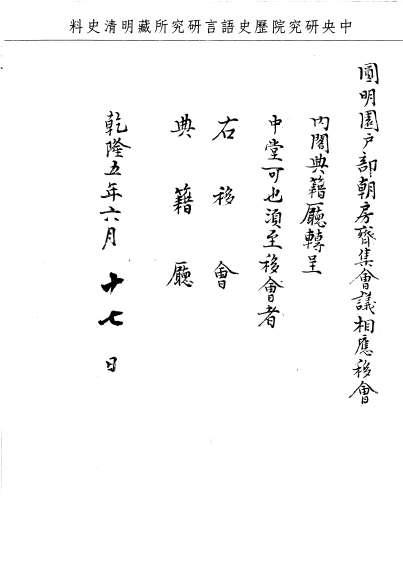 中央研究院歷史語言研究所藏明清史料
圓明園戶部朝房齊集會議相應移會
內閣典籍廳轉呈
中堂可也須至移會者
右移會
典籍廳
乾隆五年六月十七日